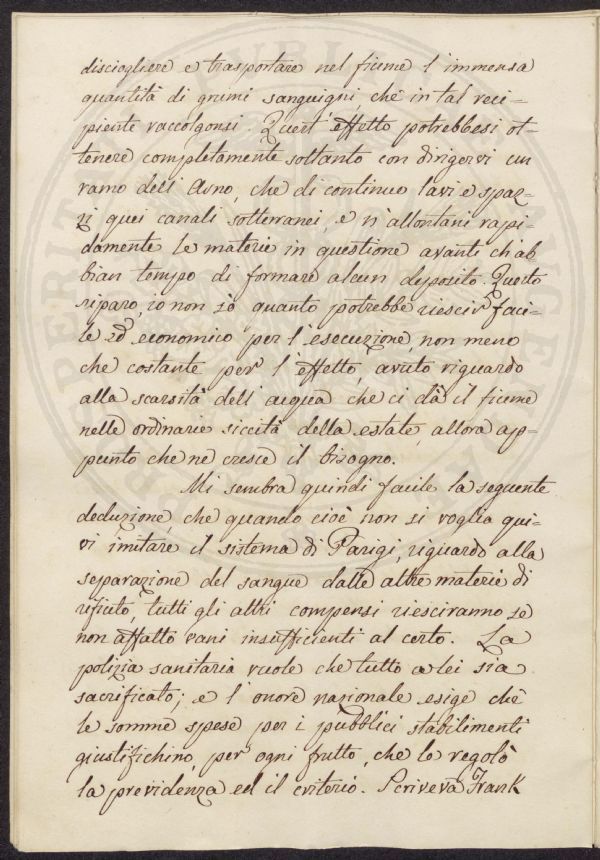 disciogliere e trasportare nel fiume l'immensa
quantità di grumi sanguigni, che in tal reci-
piente raccolgonsi. Quest'effetto potrebbesi ot-
tenere completamente soltanto con dirigervi un
ramo dell'Arno, che di continuo lavi e spaz-
zi quei canali sotterranei, e n'allontani rapi-
damente le materie in questione avanti ch'ab
bian tempo di formare alcun deposito. Questo
riparo, io non sò quanto potrebbe riescir faci-
le ed economico per l'esecuzione, non meno
che costante per l'effetto, avuto riguardo
alla scarsità dell'acqua che ci dà il fiume
nelle ordinarie siccità della estate, allora ap-
punto che ne cresce il bisogno.
Mi sembra quindi facile la seguente
deduzione, che quando cioè non si voglia qui-
vi imitare il sistema di Parigi, riguardo alla
separazione del sangue dalle altre materie di
rifiuto, tutti gli altri compensi riesciranno se
non affatto vani insufficienti al certo. La
polizia sanitaria vuole che tutto a lei sia
sacrificato; e l'onore nazionale esige che
le somme spese per i pubblici stabilimenti
giustifichino, per ogni frutto, che le regolò
la previdenza ed il criterio. Scriveva Frank